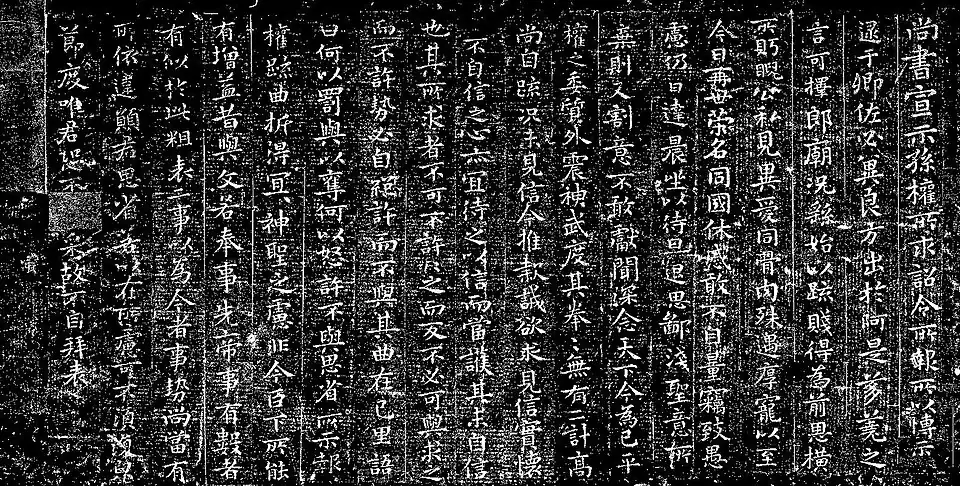 尚書宣示孫權所求詔令所報所以博示
逮于卿佐必冀良方出於阿是芻蕘之
言可擇郎廟況繇始以疏賤得為前恩橫
所盼睨公私見異愛同骨肉殊遇厚寵以至
今日再世榮名同國休慼敢不自量竊致愚
慮仍日達晨坐以待旦退思鄙淺聖意所
棄則又割意不敢獻聞深念天下今為已平
權之委質外震神武度其拳拳無有二計高
尚自疏況未見信今推款誠欲求見信實懷
不自信之心亦宜待之以信而當護其未自信
也其所求者不可不許許之而反不必可與求之
而不許勢必自絕許而不與其曲在己里語
曰何以罰與以奪何以怒許不與思省所示報
權疏曲折得宜宜神聖之慮非今臣下所能
有增益昔與文若奉事先帝事有數者
有似於此粗表二事以為今者事勢尚當有
所依違願君思省若以在所慮可不須復皃
節度唯君恐不 故不自拜表